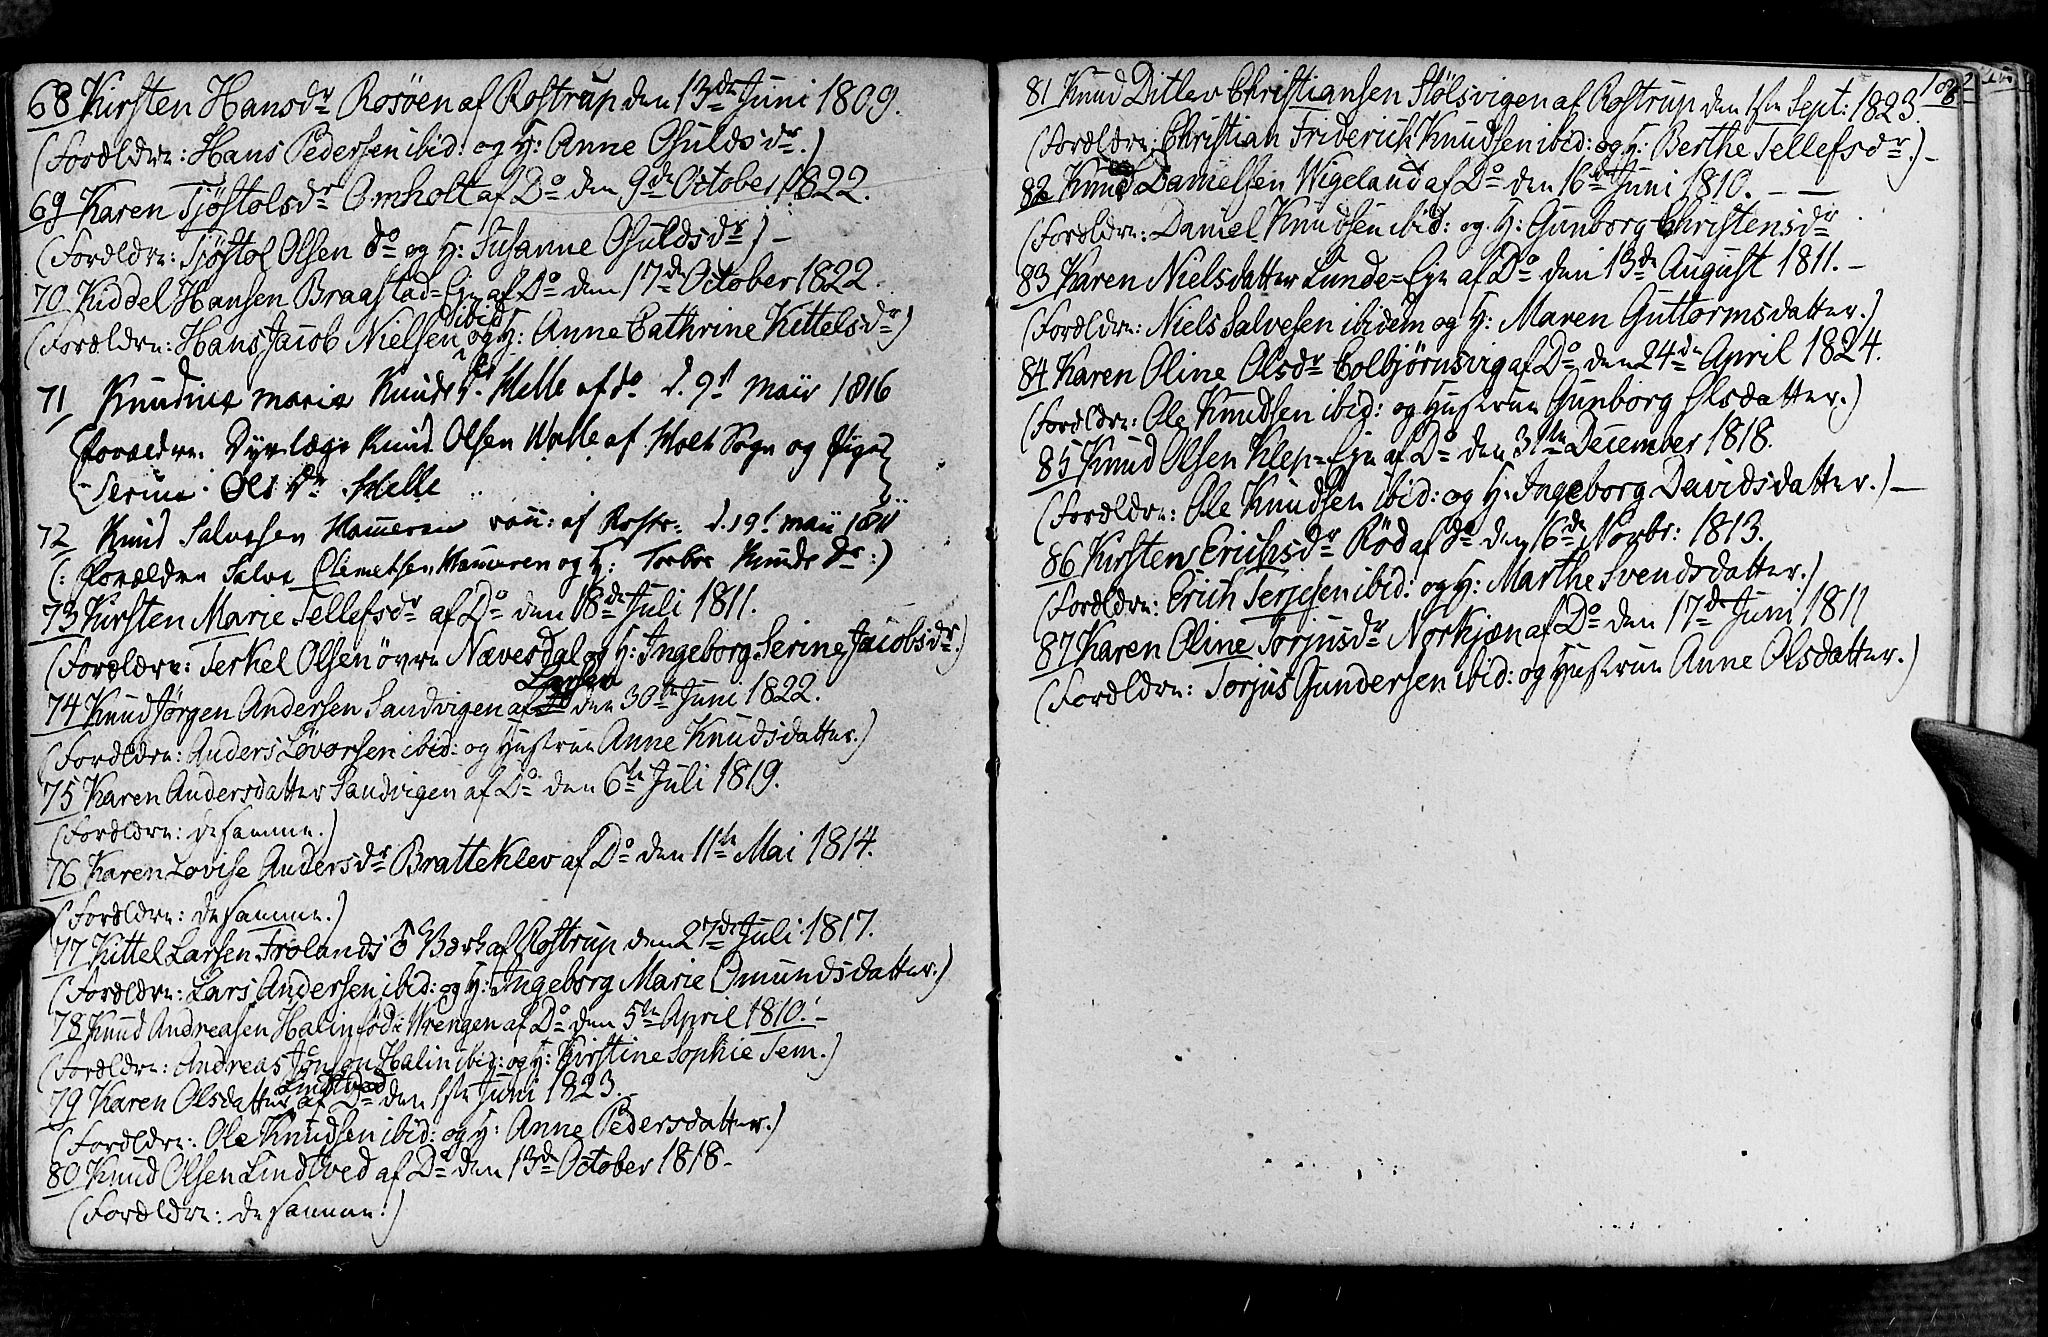 68 Kirsten Hansdr Rosöen af Rostrup den 13de Juni 1809.
(Forældre: Hans Pedersen ibid: og H: Anne Osuldsdr.)
69 Karen Tjöstolsdr Omholt af Do den 9de October 1822.
(Forældre: Tjöstol Olsen do og H: Susanne Osuldsdr) -
70 Kiddel Hansen Braastad=Eje af Do den 17de October 1822.
(Forældre: Hans Jacob Nielsen ibid og H: Anne Cathrine Kittelsdr)
71, Knudine Marie Knudsdr. Helle af do d. 9d Maii 1816
(Forældre. Dyrlæge Knud Olsen Walle af Holt Sogn og Pige
Serine Olsdr Helle
72 Knud Salvesen Hammeren vacc: af Rostr: d. 19d Maii 1811
(: Forældre Salve Clemetsen Hammeren og H: Torbor Knudsdr:)
73 Kirsten Marie Tellefsdr af Do den 18de Juli 1811.
(Forældre: Terkel Olsen övre Nævesdal og H: Ingeborg Serine Jacobsdr.)
74 Knud Jörgen Andersen Sandvigen af Larsen den 30te Juni 1822.
(Forældre: Anders Lövorsen ibid: og Hustrue Anne Knudsdatter.)
75 Karen Andersdatter Sandvigen af Do den 6te Juli 1819.
(Forældre: de samme.)
76 Karen Lovise Andersdr Bratteklev af Do den 11te Mai 1814.
(Forældre: de samme.)
77 Kittel Larsen Frolands Værk af Rostrup den 27de Juli 1817.
(Forældre: Lars Andersen ibid: og H: Ingeborg Marie Omundsdatter.)
78 Knud Andreasen Halin föd i Wrengen af Do den 5te April 1810. -
(Forældre: Andreas Jonson Halin ibid: og H: Kirstine Sophie Tem.)
79 Karen Olsdatter Lindtved af Do den 1ste Juni 1823.
(Forældre: Ole Knudsen ibid: og H: Anne Pedersdatter.)
80 Knud Olsen Lindtved af Do den 13de October 1818 -
(Forældre: de samme.)
108
81 Knud Ditlev Christiansen Stölsvigen af Rostrup den 1ste Sept: 1823.
(Forældre: Christian Friderich Knudsen ibid: og H: Berthe Tellefsdr.) -
82 Knud Danielsen Wigeland af Do den 16de Juni 1810. - -
(Forældre: Daniel Knudsen ibid: og H: Gunborg Christensdr
83 Karen Nielsdatter Lunde=Eje af Do den 13de August 1811. -
(Forældre: Niels Salvesen ibidem og H: Maren Guttormsdatter.)
84 Karen Oline Olsdr Colbjørnsvig af Do den 24de April 1824.
(Forældre: Ole Knudsen ibid: og Hustrue Gunborg Olsdatter.)
85 Knud Olsen Klep=Eje af Do den 31te December 1818.
(Forældre: Ole Knudsen ibid: og H: Ingeborg Davidsdatter.) -
86 Kirsten Erichsdr Röd af do den 16de Novbr: 1813.
(Forældre: Erich Terjesen ibid: og H: Marthe Svendsdatter.)
87 Karen Oline Torjusdr Norkjæn af Do den 17de Juni 1811
(Forældre: Torjus Gundersen ibid: og Hustrue Anne Olsdatter.)